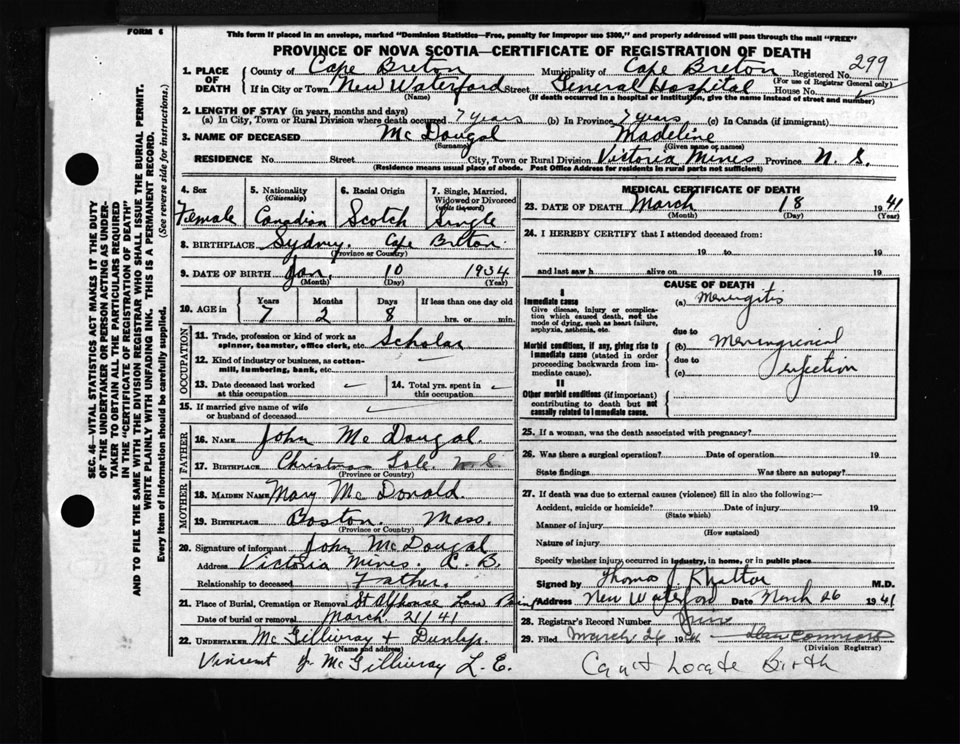 FORM 6
This form if placed in an envelope, marked "Dominion Statistics—Free, penalty for improper use $300," and properly addressed will pass through the mail "FREE"
PROVINCE OF NOVA SCOTIA—CERTIFICATE OF REGISTRATION OF DEATH
1. PLACE OF DEATH
County of Cape Breton Municipality of Cape Breton Registered No. 299
(For use of Registrar General only)
If in City or Town New Waterford Street General Hospital House No.
(Name) (If death occurred in a hospital or institution, give the name instead of street and number)
2. LENGTH OF STAY (in years, months and days)
(a) In City, Town or Rural Division where death occurred 7 years (b) In Province 7 years (c) In Canada (if immigrant)
3. NAME OF DECEASED McDougal Madeline
(Surname) (Given name or names)
RESIDENCE No. Street City, Town or Rural Division Victoria Mines Province N. S.
(Residence means usual place of abode. Post Office Address for residents in rural parts not sufficient)
4. Sex Female
5. Nationality (Citizenship) Canadian
6. Racial Origin Scotch
7. Single, Married, Widowed or Divorced (write the word) Single
8. BIRTHPLACE Sydney. Cape Breton.
(Province or Country)
9. DATE OF BIRTH Jan. 10 1934
(Month) (Day) (Year)
10. AGE in Years Months Days If less than one day old
7 2 8 hrs. or min.
OCCUPATION
11. Trade, profession or kind of work as spinner, teamster, office clerk, etc. Scholar
12. Kind of industry or business, as cotton-mill, lumbering, bank, etc.
13. Date deceased last worked at this occupation
14. Total yrs. spent in this occupation
15. If married give name of wife or husband of deceased
FATHER
16. NAME John McDougal.
17. BIRTHPLACE Christmas Isle. N. S.
(Province or Country)
MOTHER
18. MAIDEN NAME Mary McDonald.
19. BIRTHPLACE Boston. Mass.
(Province or Country)
20. Signature of informant John McDougal
Address Victoria Mines. C. B.
Relationship to deceased Father.
21. Place of Burial, Cremation or Removal St Alphonse
Date of burial or removal March 21/41
22. UNDERTAKER McGillivray & Dunlap.
(Name and address)
Vincent J. McGillivray L. E.
MEDICAL CERTIFICATE OF DEATH
23. DATE OF DEATH March 18 1941
(Month) (Day) (Year)
24. I HEREBY CERTIFY that I attended deceased from:
19 to 19
and last saw h alive on 19
CAUSE OF DEATH
I
Immediate cause
Give disease, injury or complication which caused death, not the mode of dying, such as heart failure, asphyxia, asthenia, etc.
(a) Meningitis
due to
Morbid conditions, if any, giving rise to immediate cause (stated in order proceeding backwards from immediate cause).
(b)
due to
(c) Infection
II
Other morbid conditions (if important) contributing to death but not causally related to immediate cause.
25. If a woman, was the death associated with pregnancy?
26. Was there a surgical operation? Date of operation 19
State findings Was there an autopsy?
27. If death was due to external causes (violence) fill in also the following:—
Accident, suicide or homicide? Date of injury 19
(State which)
Manner of injury
(How sustained)
Nature of injury
Specify whether injury occurred in industry, in home, or in public place
Signed by Thomas J. M.D.
Address New Waterford Date March 26 1941
28. Registrar's Record Number Nine
29. Filed March 26 1941
(Division Registrar)
Can't Locate Birth
SEC. 46—VITAL STATISTICS ACT MAKES IT THE DUTY
OF THE UNDERTAKER OR PERSON ACTING AS UNDER-
TAKER TO OBTAIN ALL THE PARTICULARS REQUIRED
IN THE "CERTIFICATE OF REGISTRATION OF DEATH"
AND TO FILE THE SAME WITH THE DIVISION REGISTRAR WHO SHALL ISSUE THE BURIAL PERMIT.
WRITE PLAINLY WITH UNFADING INK. THIS IS A PERMANENT RECORD.
Every item of information should be carefully supplied. (See reverse side for instructions.)